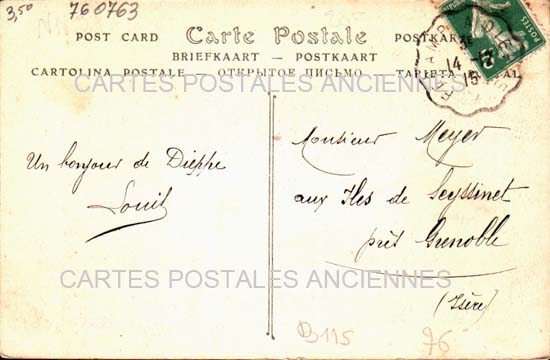 3,50
760763
POST CARD Carte Postale POSTKARTE
BRIEFKAART — POSTKAART
CARTOLINA POSTALE — ОТКРЫТОЕ ПИСЬМО —
CARTES POSTALES ANCIENNES
14 -
15
POSTES
Un bonjour de Dieppe
Louis
Monsieur Meyer
aux Iles de Seyssinet
près Grenoble
(Isère)
CARTES POSTALES ANCIENNES
B115
76